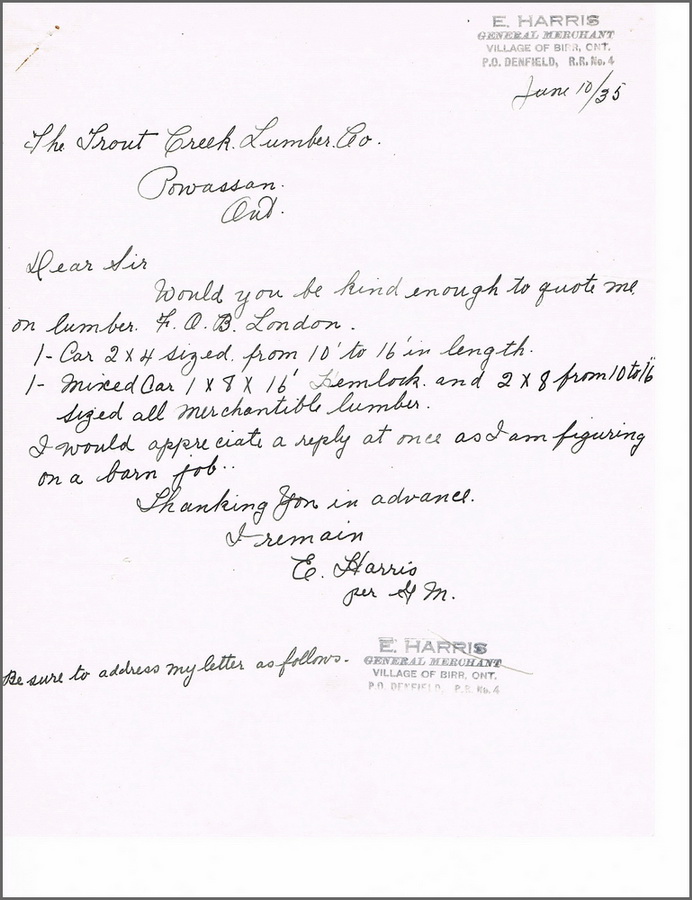 E. HARRIS
GENERAL MERCHANT
VILLAGE OF BIRR, ONT.
P.O. DENFIELD, R.R. No. 4
June 10/35
The Trout Creek. Lumber. Co.
Powassan.
Ont.
Dear Sir
Would you be kind enough to quote me
on lumber. F. O. B. London.
1- Car 2 X 4 sized. from 10' to 16' in length.
1- Mixed Car 1 X 8 X 16' Hemlock. and 2 X 8 from 10 to 16'
sized all merchantible lumber.
I would appreciate a reply at once as I am figuring
on a barn job..
Thanking You in advance.
I remain
E. Harris
per H M.
Be sure to address my letter as follows.
E. HARRIS
GENERAL MERCHANT
VILLAGE OF BIRR, ONT.
P.O. DENFIELD, R.R. No. 4